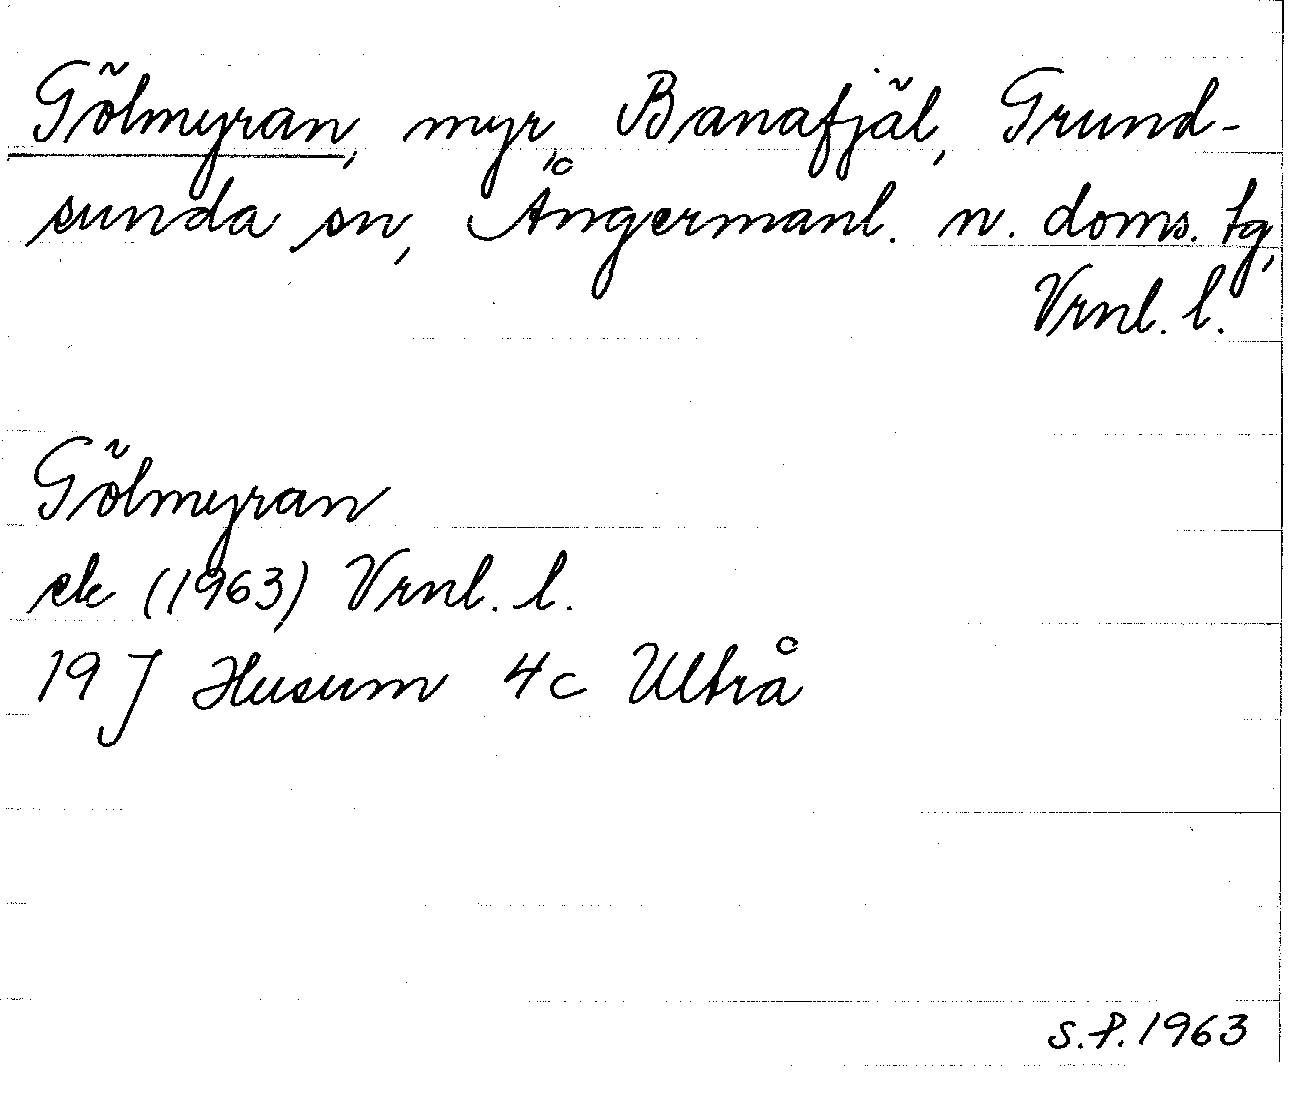 Gölmyran, myr, Banafjäl, Grund-
sunda sn, Ångermanl. n. doms. tg,
Vrnl. l.
Gölmyran
ek (1963) Vrnl. l.
19 J Husum 4c Ultrå
S.P. 1963